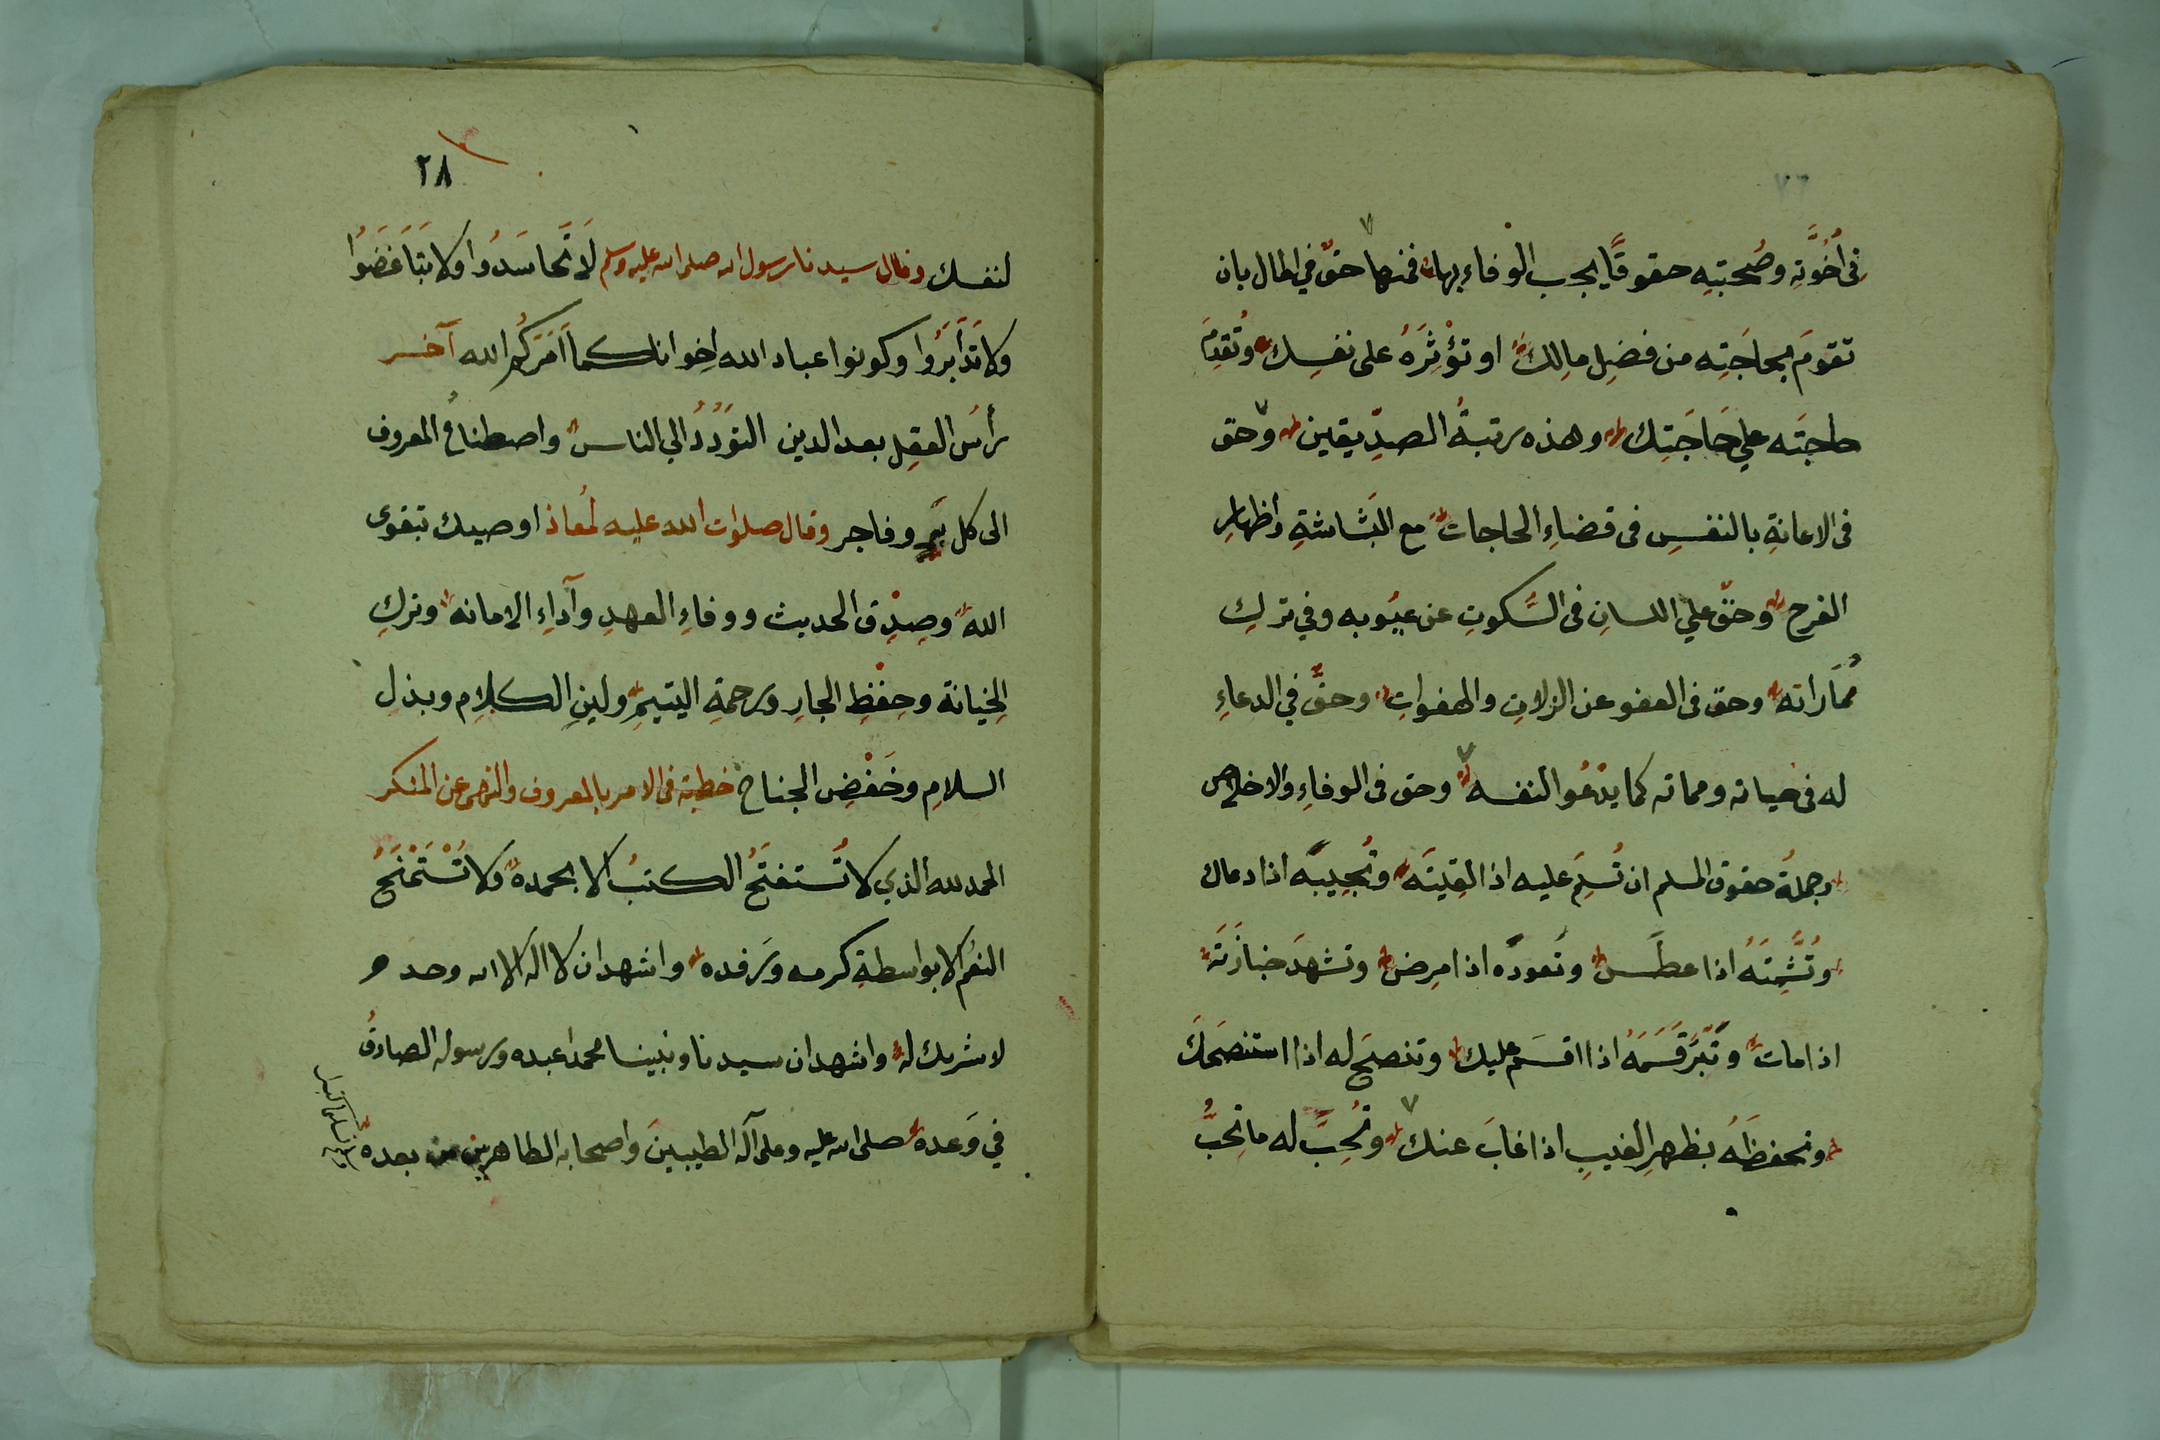 في أُخُوَّتِه وصُحبتِه حقوقًا يجب الْوفاء بها فمنها حقٌّ في المال بان
تقومَ بحاجَتِه من فضلِ مالِك او تؤْثِرَهُ على نفسِك وتُقدِمَ
حاجتَه علي حَاجَتِك وهذه رتبةُ الصدِّيقين وحق
في الاعانةِ بالنفسِ في قضاءِ الحاجات مع البَشاشةِ واظهارِ
الفرح وحقٌّ علي اللسانِ في السُّكوتِ عن عيُوبه وفي تركِ
مُمَاراته وحق في العفو عن الزلاتِ والهفواتِ وحقٌّ في الدعاءِ
له في حياته ومماته كما يدْعُو لنفسه وحق في الوفاءِ والاخلاص
وجملةُ حقوق المسلم ان تُسلِمَ عليه اذا لقِيتَه وتُجِيبَه اذا دعاك
وتُشَمِّتَهُ اذا عطَس وتَعودَه اذا مرِض وتشهدَ جنازَتَه
اذا مات وتَبَرَّ قَسَمَهُ اذا اقسَم عليك وتنصحَ له اذا استنصَحَكَ
وتحفظَهُ بظهرِ الغيبِ اذا غابَ عنك وتُحِبَّ له ما تُحِبُّ
٢٨
لنفسك وقال سيدنا رسول الله صلى الله عليه وسلم لَا تَحَاسَدُوا ولا تَبَاغَضَوُا
ولا تَدَابَرَُوا وكونوا عباد الله اِخوانا كما اَمَرَكُم الله آخر
رأسُ العقلِ بعد الدين التوَدُدُ الي الناس واصطناعُ المعروف
الى كل بَرٍ وفاجر وقال صلوات الله عليه لمُعاذ اوصيك بتقوى
الله وصِدْقِ الحديث ووفاءِ العهدِ وآداءِ الامانه وتركِ
الخِيانة وحِفْظِ الجارِ ورحمةِ اليتيمِ ولينِ الكلامِ وبذلِ
السلامِ وخَفْضِ الجناح خطبة في الامر بالمعروف والنهي عن المنكر
الحمد لله الذي لا تُستفتَحُ الكتبُ الا بحمده ولا تُسْتَمْنَحُ
النعُم الا بواسطةِ كرمه ورَفده واشهد ان لا اله الا الله وحده
لا شريك له واشهد ان سيدنا ونبينا محمدا عبده ورسوله الصادقُ
في وَعده صلى الله عليه وعلى آله الطيبينَ واصحابه الطاهرين من بعده